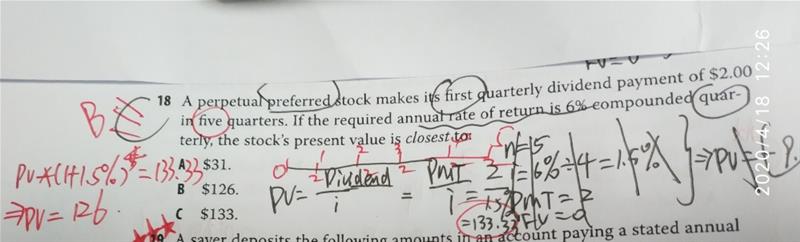 18 A perpetual preferred stock makes its first quarterly dividend payment of $2.00
in five quarters. If the required annual rate of return is 6% compounded quar-
terly, the stock's present value is closest to:
A $31.
B $126.
C $133.
B
PV*(1+1.5%)^4=133.33
⇒PV=126.
0 1 2 3 4 5
2 2
PV= Dividend / i = PmT / i = 2 / 1.5%
=133.33
n=5
i=6%÷4=1.5%
PmT=2
FV=0
⇒PV=-9.
A saver deposits the following amounts in an account paying a stated annual
2020/4/18 12:26